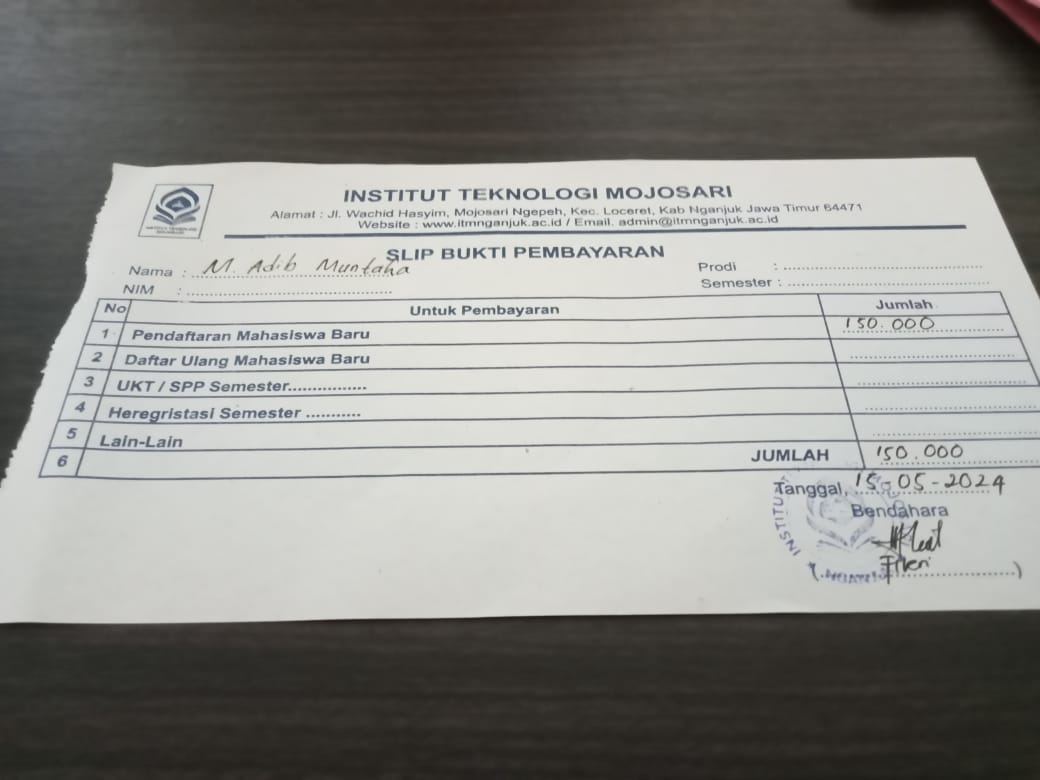 INSTITUT TEKNOLOGI MOJOSARI
Alamat : Jl. Wachid Hasyim, Mojosari Ngepeh, Kec. Loceret, Kab Nganjuk Jawa Timur 64471
Website : www.itmnganjuk.ac.id / Email. admin@itmnganjuk.ac.id
SLIP BUKTI PEMBAYARAN
Nama : M. Adib Muntaha
Prodi :
NIM :
Semester :
No Untuk Pembayaran Jumlah
1 Pendaftaran Mahasiswa Baru 150.000
2 Daftar Ulang Mahasiswa Baru
3 UKT / SPP Semester................
4 Heregristasi Semester ...........
5 Lain-Lain
6 JUMLAH 150.000
Tanggal, 15-05-2024
Bendahara
INSTITUT